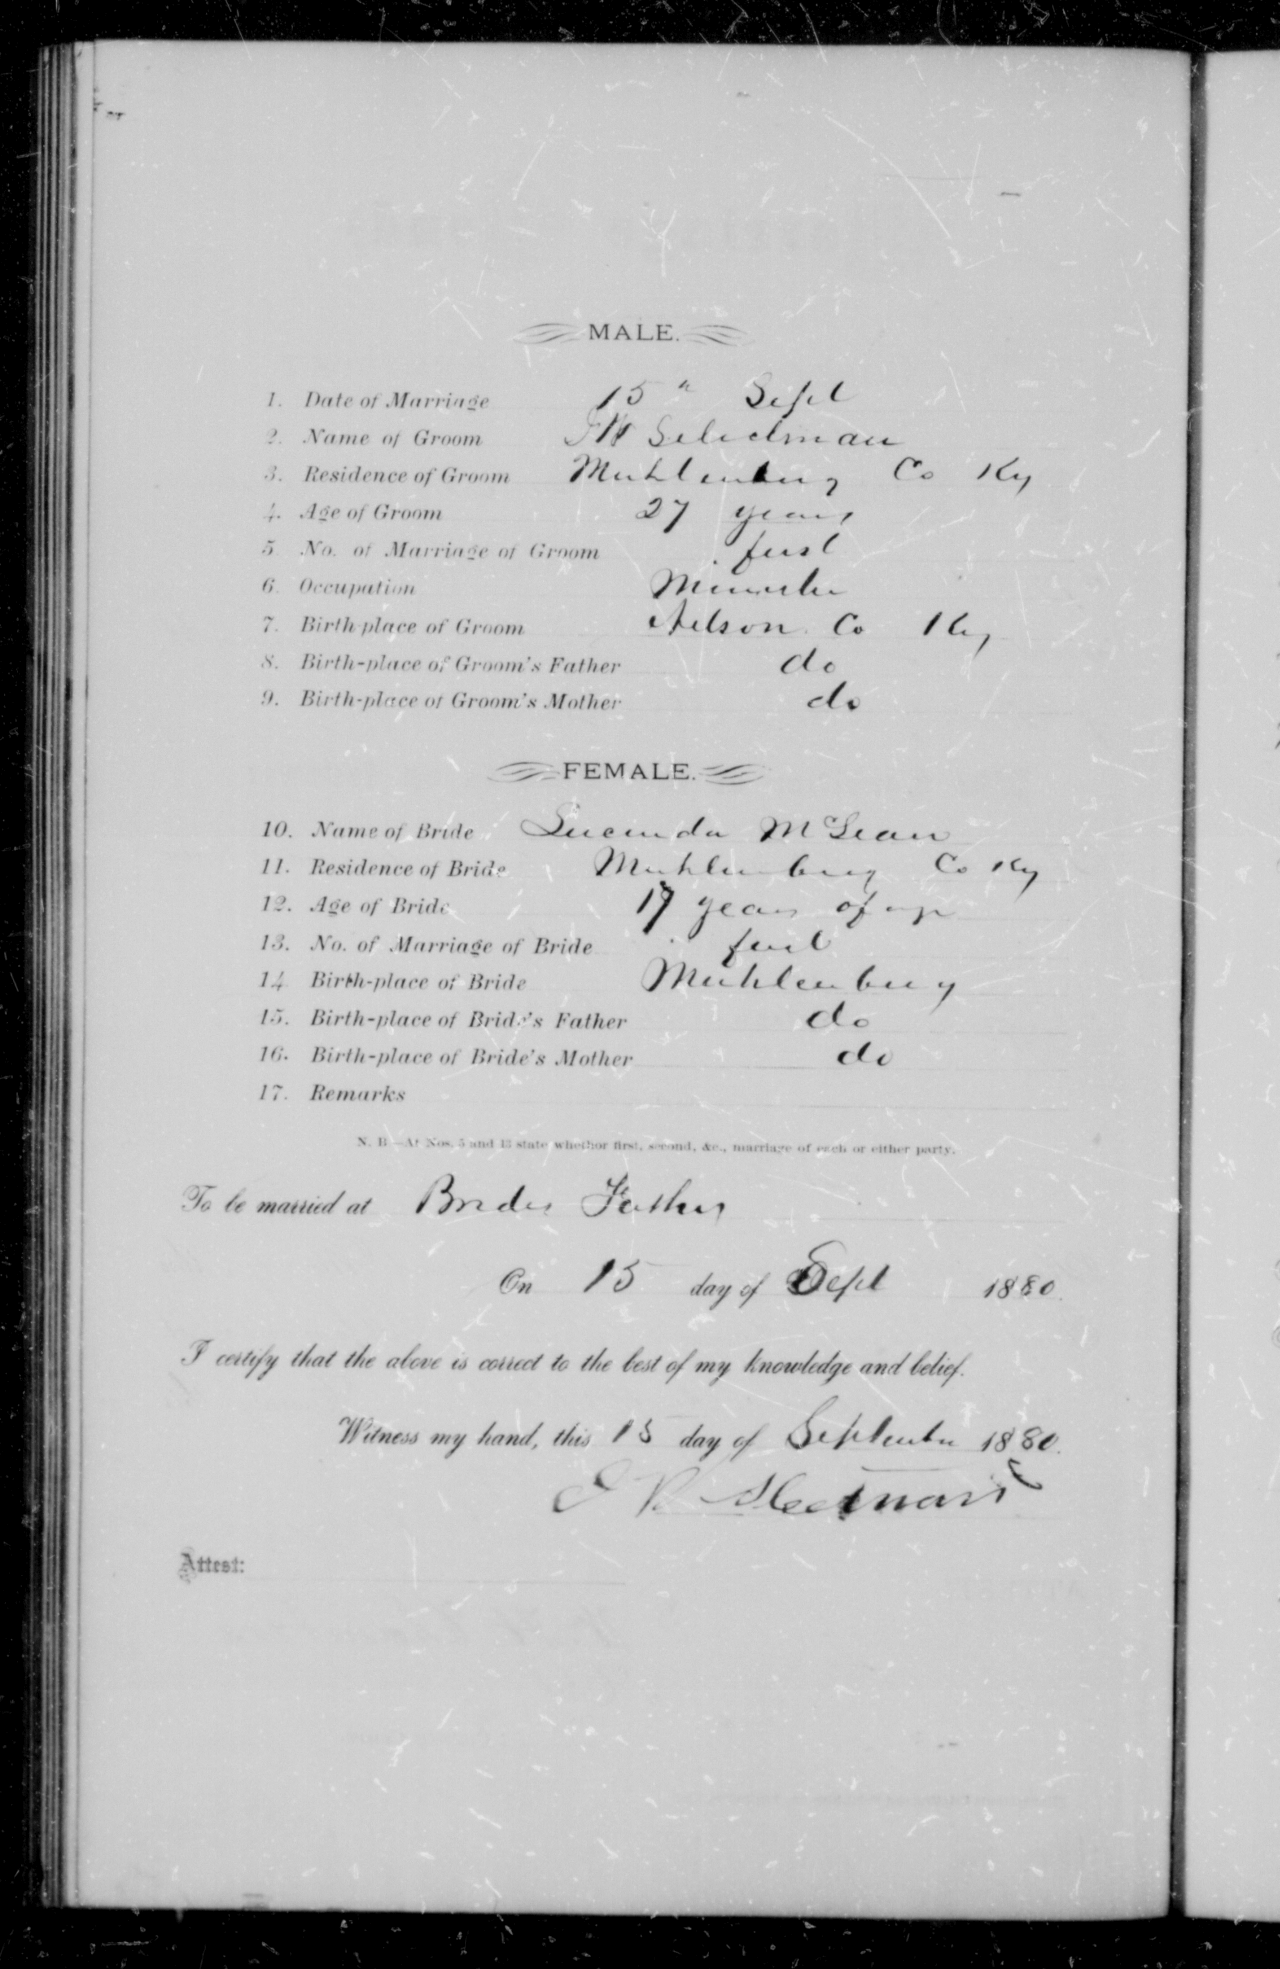 MALE.
1. Date of Marriage 15" Sept
2. Name of Groom
3. Residence of Groom Muhlenberg Co Ky
4. Age of Groom 27 years
5 No. of Marriage of Groom first
6. Occupation Minister
7. Birth-place of Groom Nelson Co Ky
8. Birth-place of Groom's Father do
9. Birth-place of Groom's Mother do
FEMALE.
10. Name of Bride Lucinda McLean
11. Residence of Bride Muhlenberg Co Ky
12. Age of Bride 19 years of age
13. No. of Marriage of Bride first
14 Birth-place of Bride Muhlenberg
15. Birth-place of Bride's Father do
16. Birth-place of Bride's Mother do
17. Remarks
N. B—At Nos. 5 and 13 state whether first, second, &c., marriage of each or either party.
To be married at Brides Fathers
On 15 day of Sept 1880.
I certify that the above is correct to the best of my knowledge and belief.
Witness my hand, this 15 day of September 1880.
Attest: